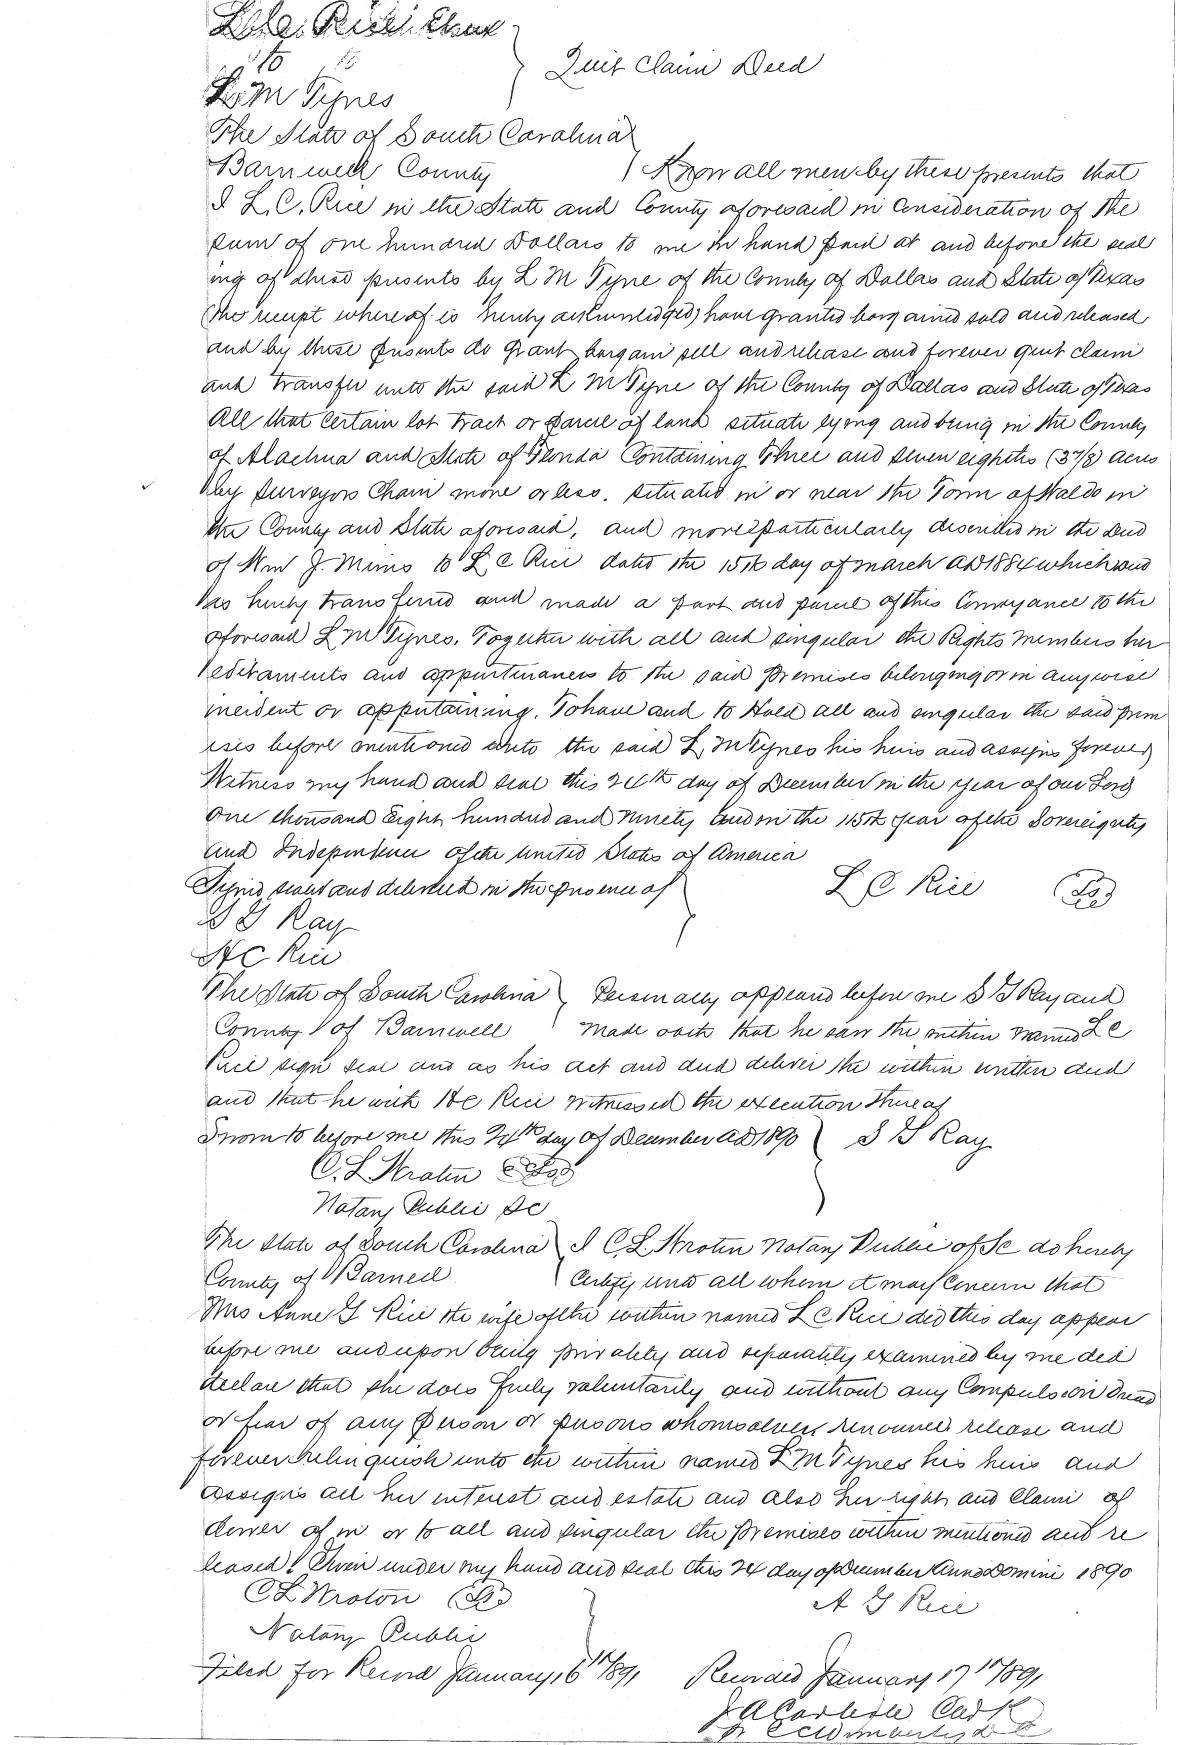 Rice
to
L. M Tynes
Quit Claim Deed
The State of South Carolina
Barnwell County Know all men by these presents that
I L. C. Rice in the State and County aforesaid in consideration of the
sum of one hundred Dollars to me in hand paid at and before the seal
ing of these presents by L M Tyne of the County of Dallas and State of Texas
(the receipt whereof is hereby acknowledged) have granted bargained sold and released
and by these presents do grant bargain sell and release and forever quit claim
and transfer unto the said L M Tyne of the County of Dallas and State of Texas
All that certain lot tract or parcel of land situate lying and being in the County
of Alachua and State of Florida Containing Three and seven eighths (3 7/8) acres
by Surveyors Chain more or less. situated in or near the Town of Waldo in
the County and State aforesaid, and more particularly described in the Deed
of Wm J. Mims to L C Rice dated the 15th day of March AD 1884 which deed
is hereby transferred and made a part and parcel of this Conveyance to the
aforesaid L M Tynes. Together with all and singular the Rights Members her
editaments and appurtenances to the said premises belonging or in anywise
incident or appertaining. To have and to Hold all and singular the said prem
ises before mentioned unto the said L, M Tynes his heirs and assigns forever
Witness my hand and seal this 24th day of December in the year of our Lord
One thousand Eight hundred and Ninety and in the 115th year of the Sovereignty
and Independence of the United States of America
Signed sealed and delivered in the presence of L C Rice (LS)
S G Ray
H C Rice
The State of South Carolina Personally appeared before me S G Ray and
County of Barnwell made oath that he saw the within named L C
Rice sign seal and as his act and deed deliver the within written deed
and that he with H C Rice witnessed the execution thereof
Sworn to before me this 24th day of December AD 1890 S G Ray
C. L Wroton (LS)
Notary Public SC
The State of South Carolina I C L Wroton Notary Public of SC do hereby
County of Barnell Certify unto all whom it may Concern that
Mrs Anne G Rice the wife of the within named L C Rice did this day appear
before me and upon being privately and separately examined by me did
declare that she does freely voluntarily and without any Compulsion Dread
or fear of any person or persons whomsoever renounce release and
forever relinquish unto the within named L M Tynes his heirs and
assigns all her interest and estate and also her right and Claim of
dower of in or to all and singular the premises within mentioned and re
leased. Given under my hand and seal this 24 day of December Anno Domini 1890
C L Wroton (LS) A G Rice
Notary Public
Filed for Record January 16th 1891 Recorded January 17th 1891
J A Carlisle Clerk